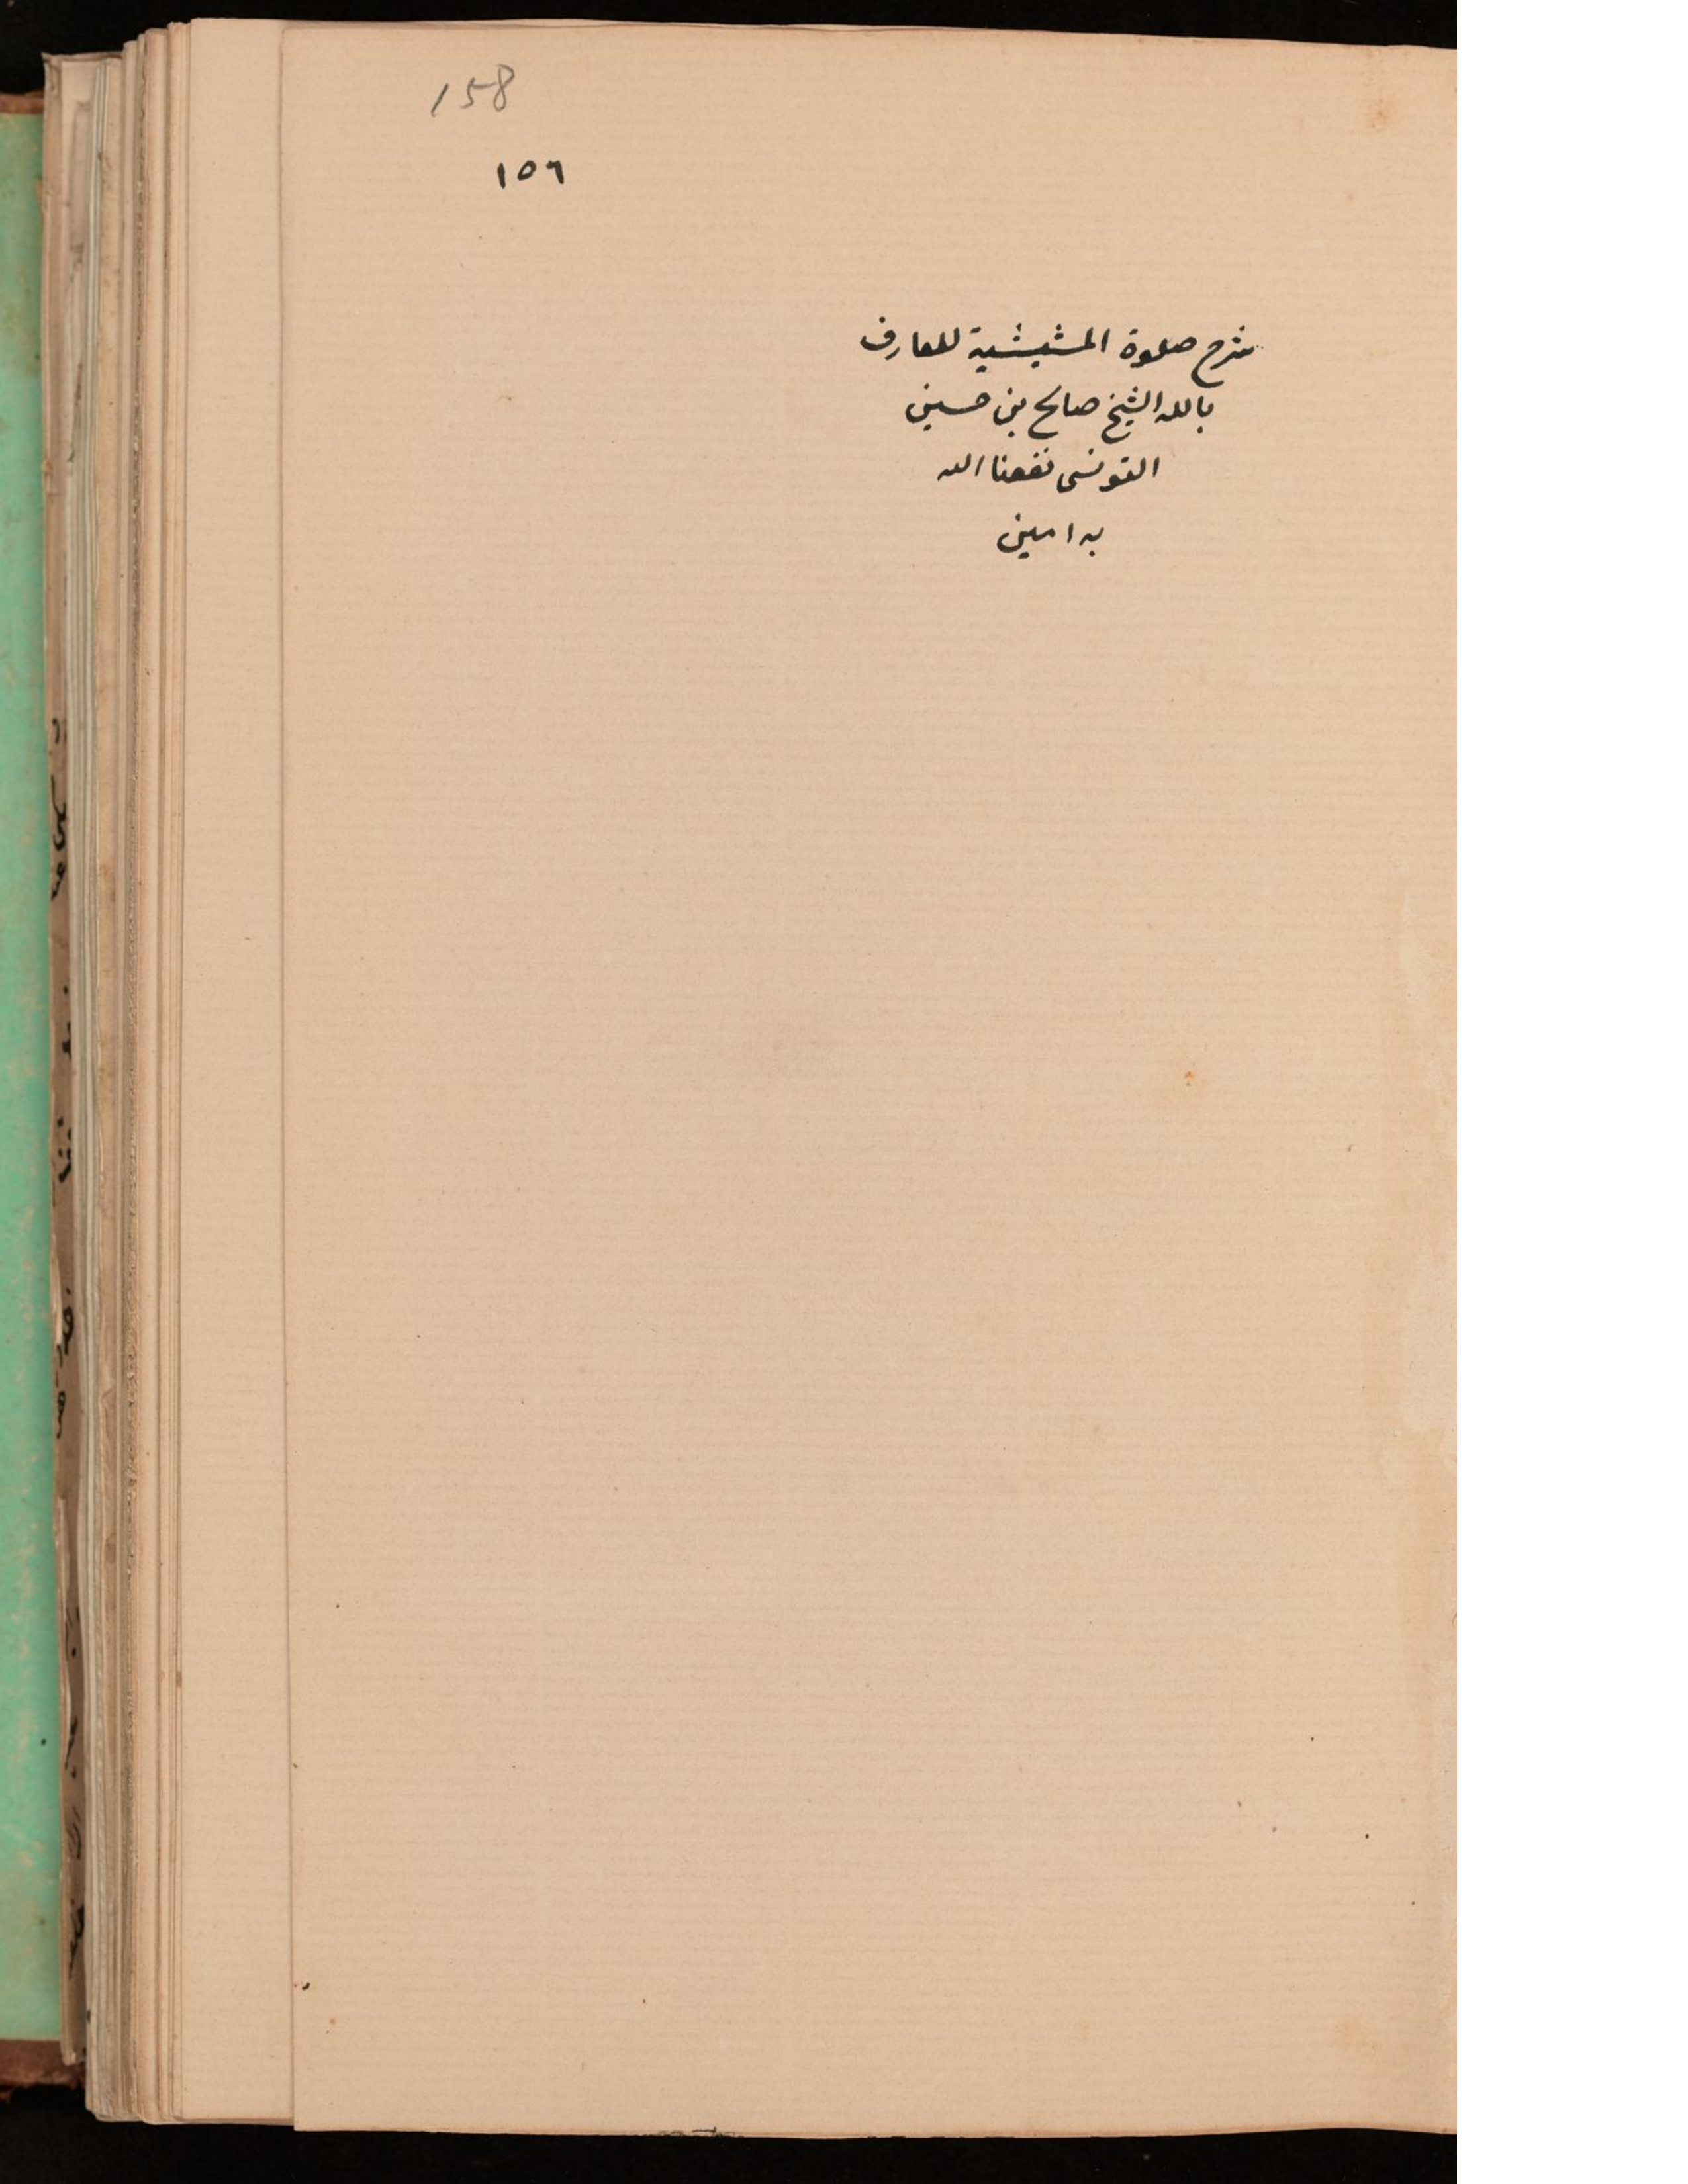 158
١٥٦
شرح صلوة المشيشية للعارف
بالله الشيخ صالح بن حسين
التونسى نفعنا الله
به امين